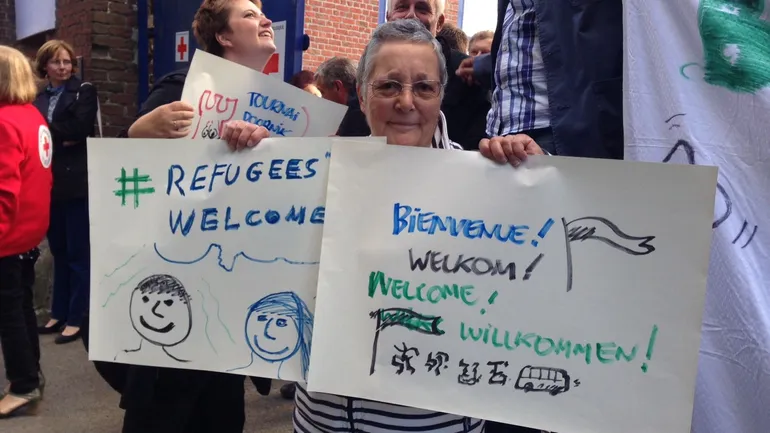 TOURNAI
DOORNIK
#REFUGEES"
WELCOME
BIENVENUE!
WELKOM!
WELCOME!
WILLKOMMEN!